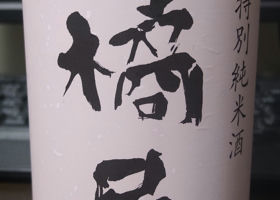 特別純米酒
橘